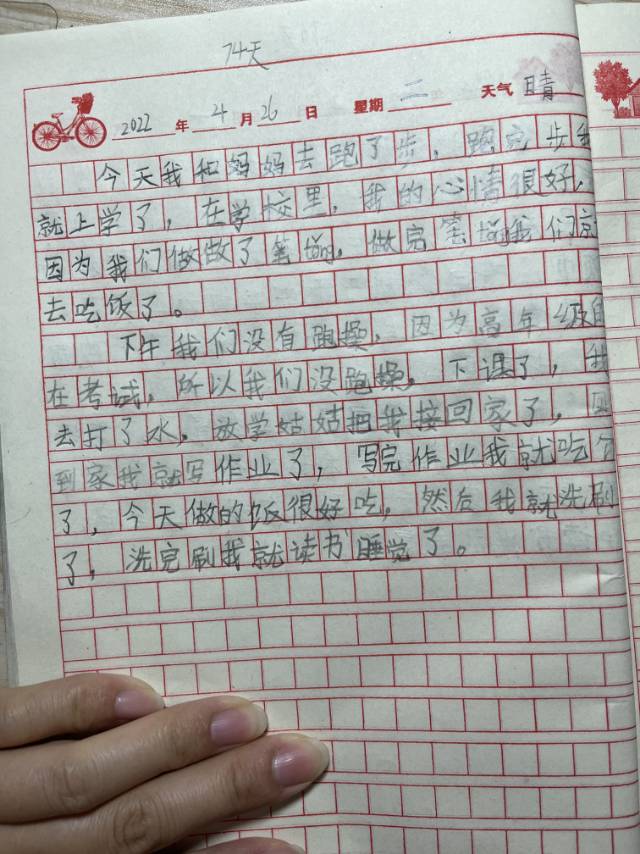 74天
2022 年 4 月 26 日 星期 二 天气 晴
今天我和妈妈去跑了步，跑完步我
就上学了，在学校里，我的心情很好，
因为我们做做了笔，做完笔我们京
去吃饭了。
下午我们没有跑操，因为高年级
在考试，所以我们没跑操，下课了，我
去打了水，放学姑姑把我接回家了，
到家我就写作业了，写完作业我就吃
了，今天做的饭很好吃，然后我就洗刷
了，洗完刷我就读书睡觉了。